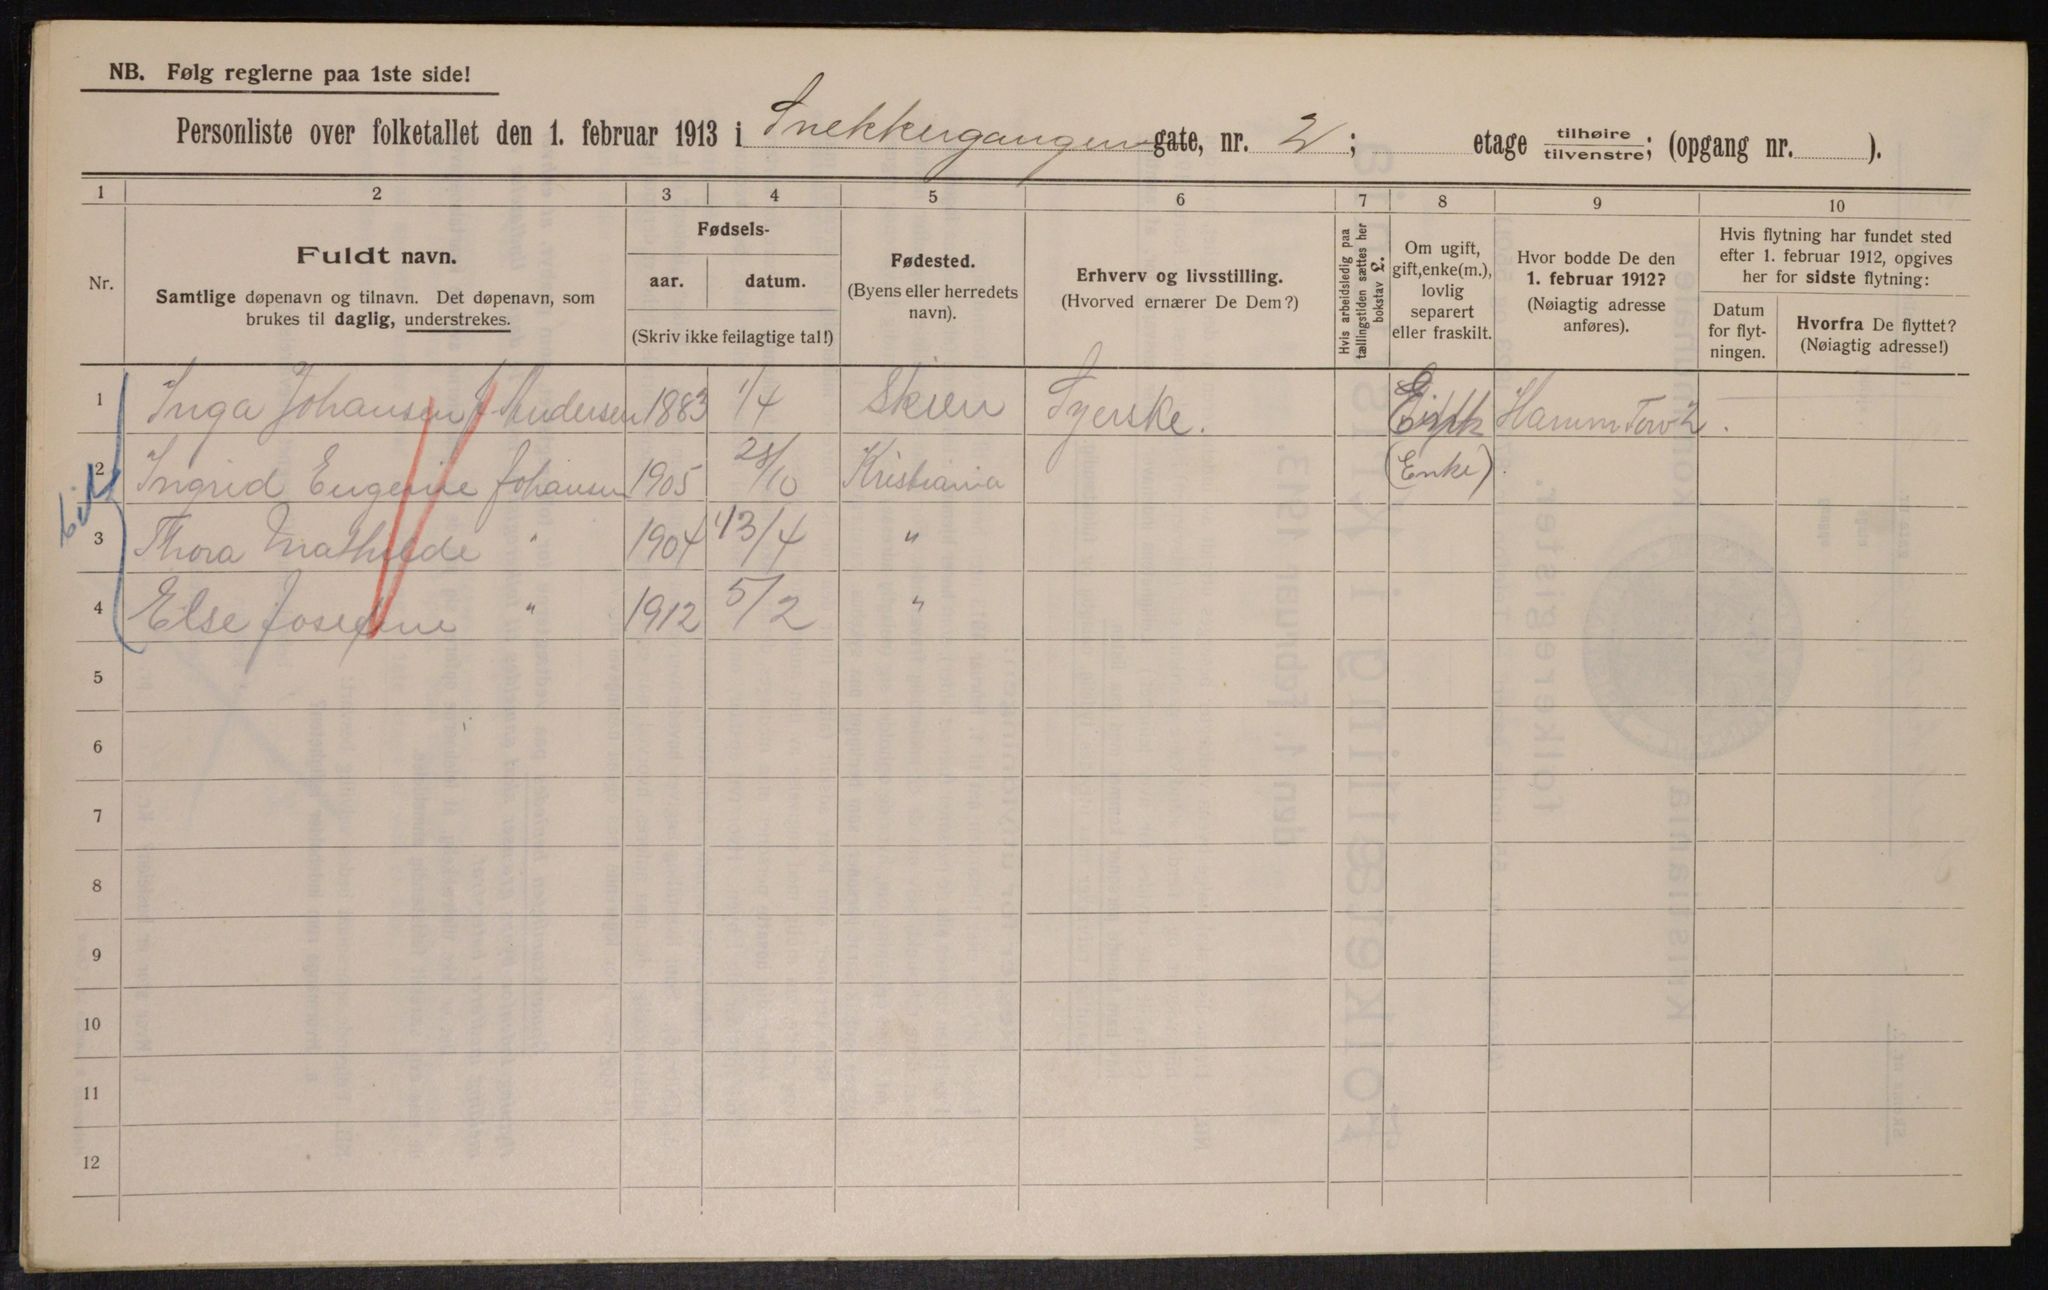 NB. Følg reglerne paa 1ste side!
Personliste over folketallet den 1. februar 1913 i Snekkergangen gate, nr. 2; etage tilhøire tilvenstre; (opgang nr. ).
1 2 3 4 5 6 7 8 9 10
Nr.
Fuldt navn.
Samtlige døpenavn og tilnavn. Det døpenavn, som
brukes til daglig, understrekes.
Fødsels-
aar. datum.
(Skriv ikke feilagtige tal!)
Fødested.
(Byens eller herredets
navn).
Erhverv og livsstilling.
(Hvorved ernærer De Dem?)
Hvis arbeidsledig paa
tællingstiden sættes her
bokstav L.
Om ugift,
gift, enke(m.),
lovlig
separert
eller fraskilt.
Hvor bodde De den
1. februar 1912?
(Nøiagtig adresse
anføres).
Hvis flytning har fundet sted
efter 1. februar 1912, opgives
her for sidste flytning:
Datum
for flyt-
ningen.
Hvorfra De flyttet?
(Nøiagtig adresse!)
1 Inga Johansen f. Andersen 1883 1/4 Skien Syerske. Hamm Torv 2.
2 Ingrid Eugenie Johansen 1905 28/10 Kristiania (Enke).
3 Thora Mathilde " 1904 13/4 "
4 Else Josefine " 1912 5/2 "
5
6
7
8
9
10
11
12